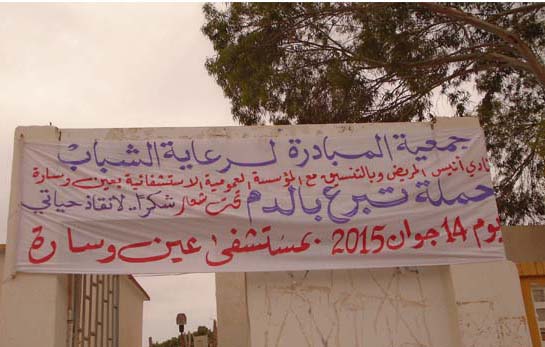 جمعية المبادرة لرعاية الشباب
نادي أنيس المريض وبالتنسيق مع المؤسسة العمومية الاستشفائية بعين وسارة
حملة تبرع بالدم تحت شعار شكرا.. لانقاذ حياتي
يوم 14 جوان 2015 بمستشفى عين وسارة